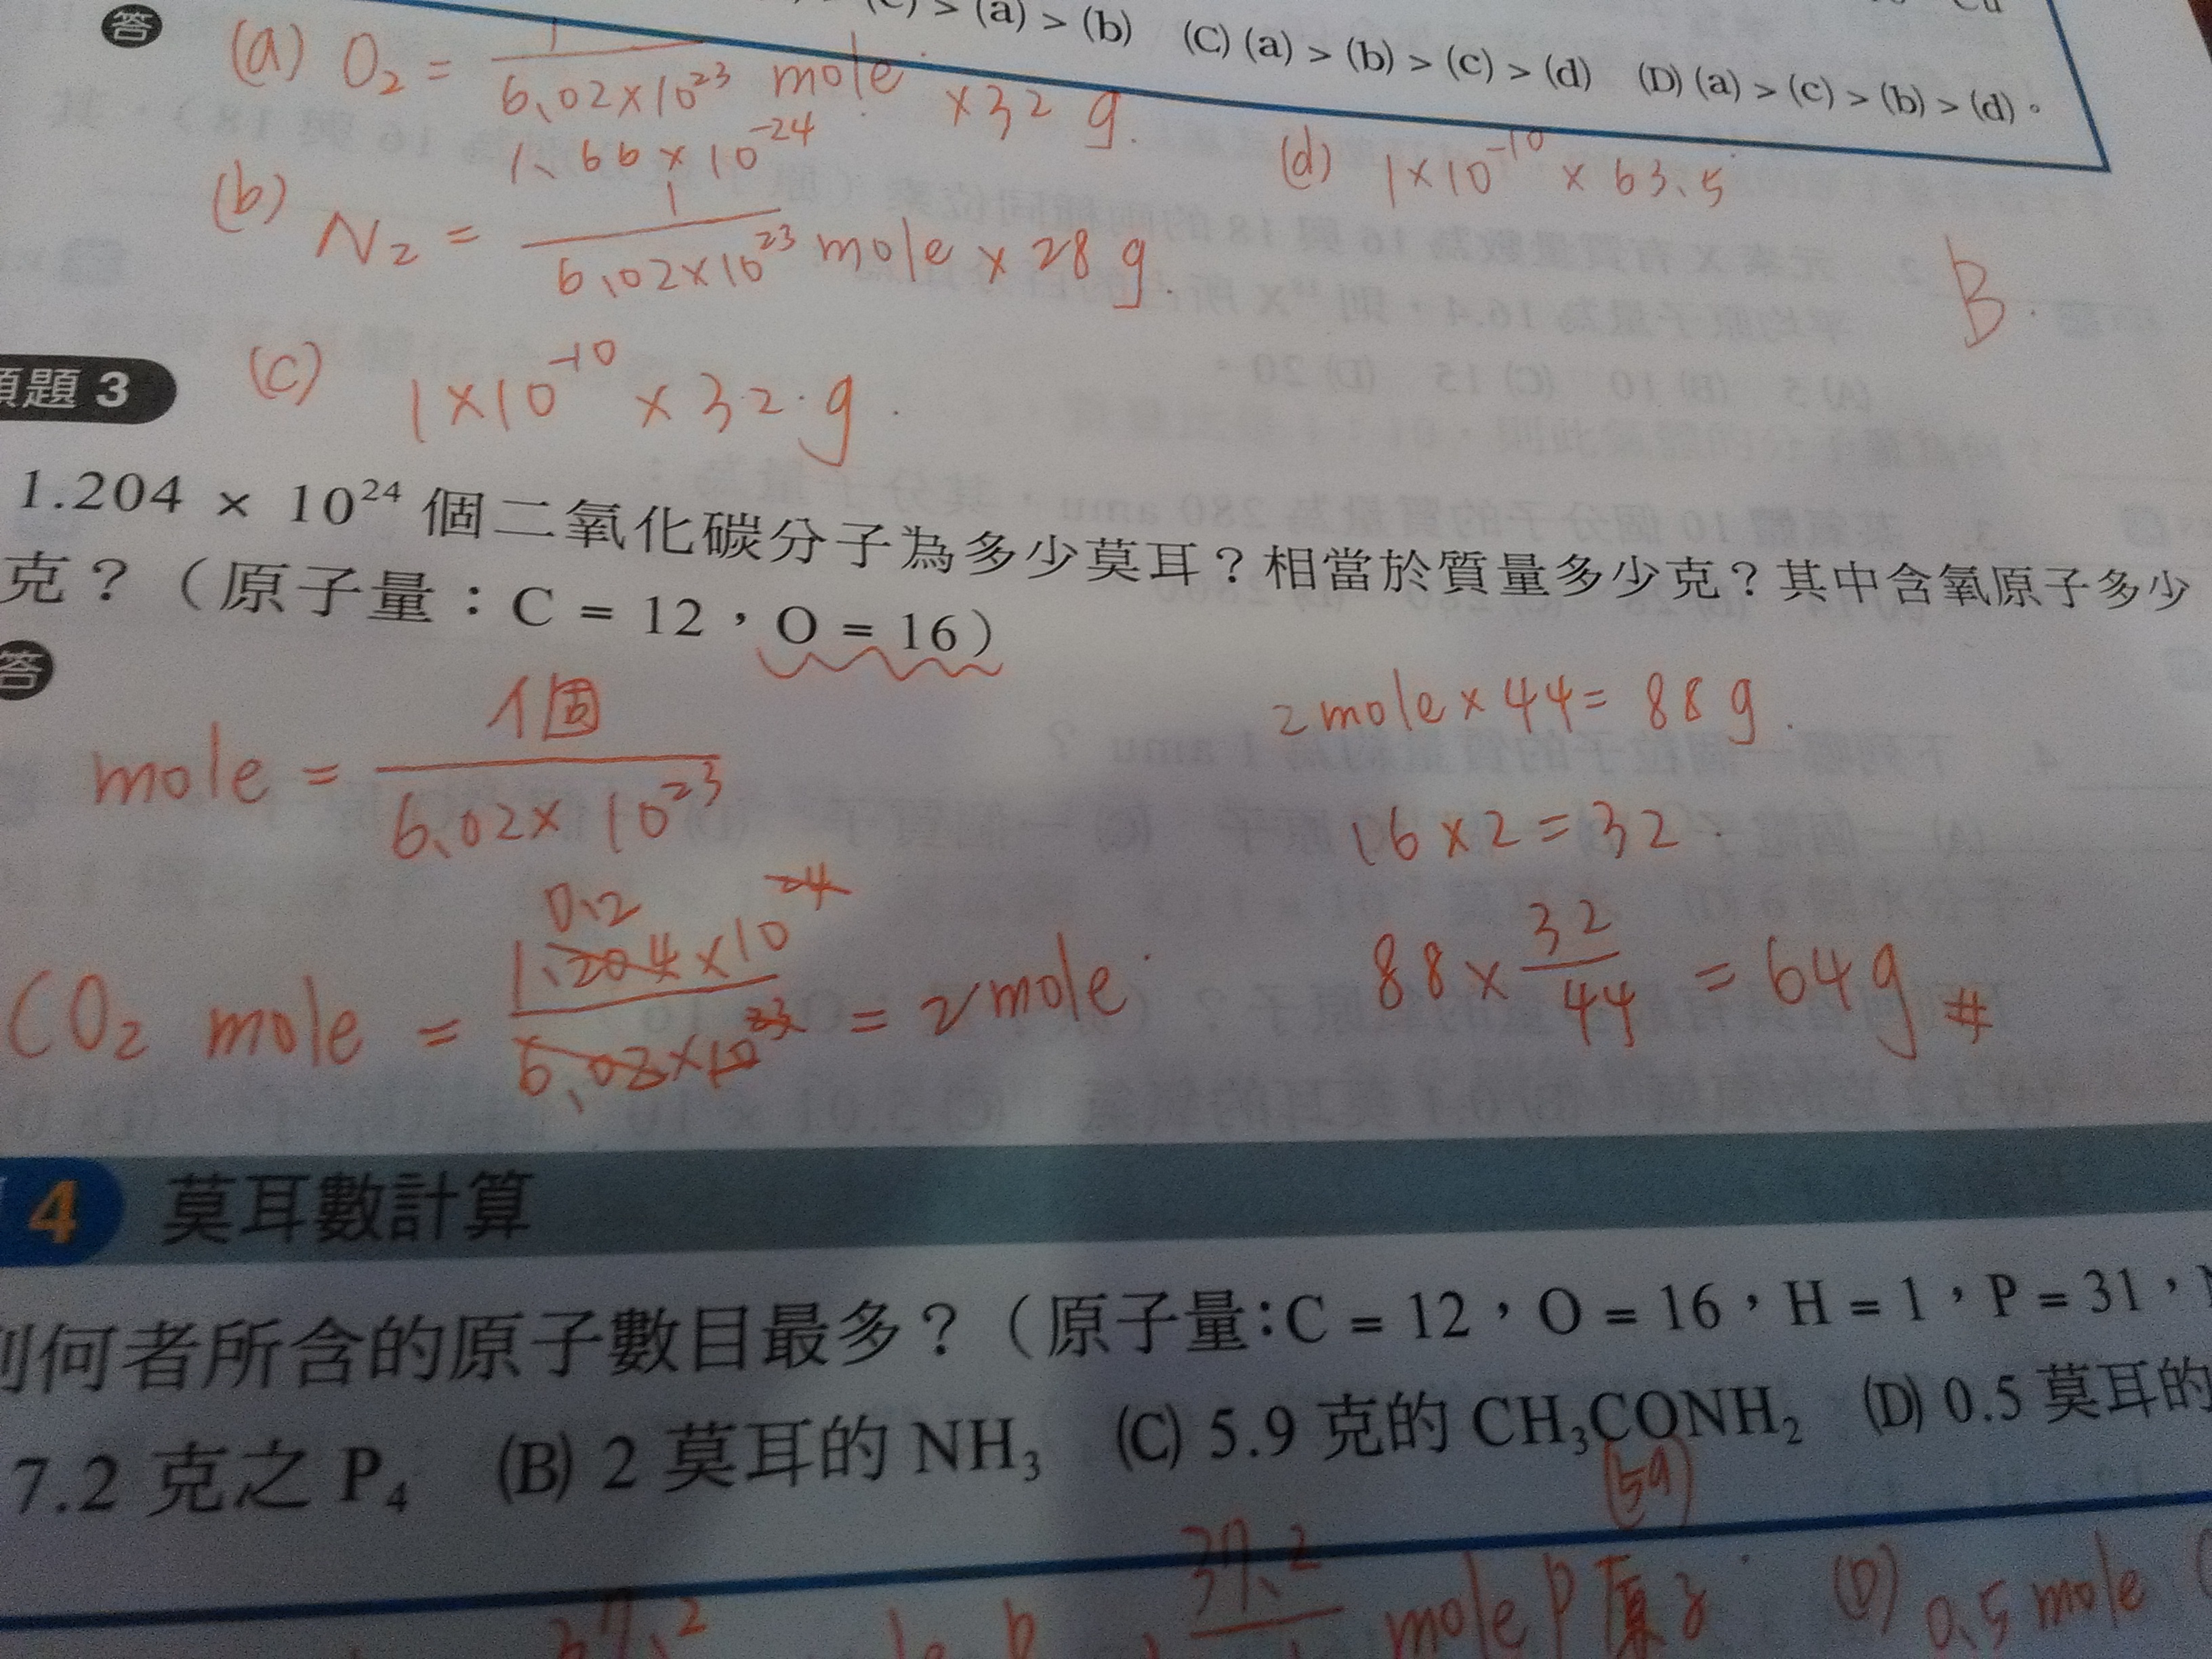 > (a) > (b) (C) (a) > (b) > (c) > (d) (D) (a) > (c) > (b) > (d)。
答
(a) O₂ = 1 / 6.02×10²³ mole ×32 g.
1.66×10⁻²⁴
(d) 1×10⁻¹⁰ × 63.5
(b) N₂ = 1 / 6.02×10²³ mole × 28 g.
B.
(c) 1×10⁻¹⁰ × 32.g.
題 3
1.204 × 10²⁴ 個二氧化碳分子為多少莫耳？相當於質量多少克？其中含氧原子多少
克？（原子量：C = 12，O = 16）
答
mole = 個 / 6.02×10²³
2mole×44=88g.
16×2=32.
0.2
CO₂ mole = 1.204×10²⁴ / 6.02×10²³ = 2mole.
88×32/44 = 64g #
4 莫耳數計算
何者所含的原子數目最多？（原子量：C = 12，O = 16，H = 1，P = 31，
7.2 克之 P₄ (B) 2 莫耳的 NH₃ (C) 5.9 克的 CH₃CONH₂ (D) 0.5 莫耳的
(59)
37.2 37.2 mole P原子. (D) 0.5 mole